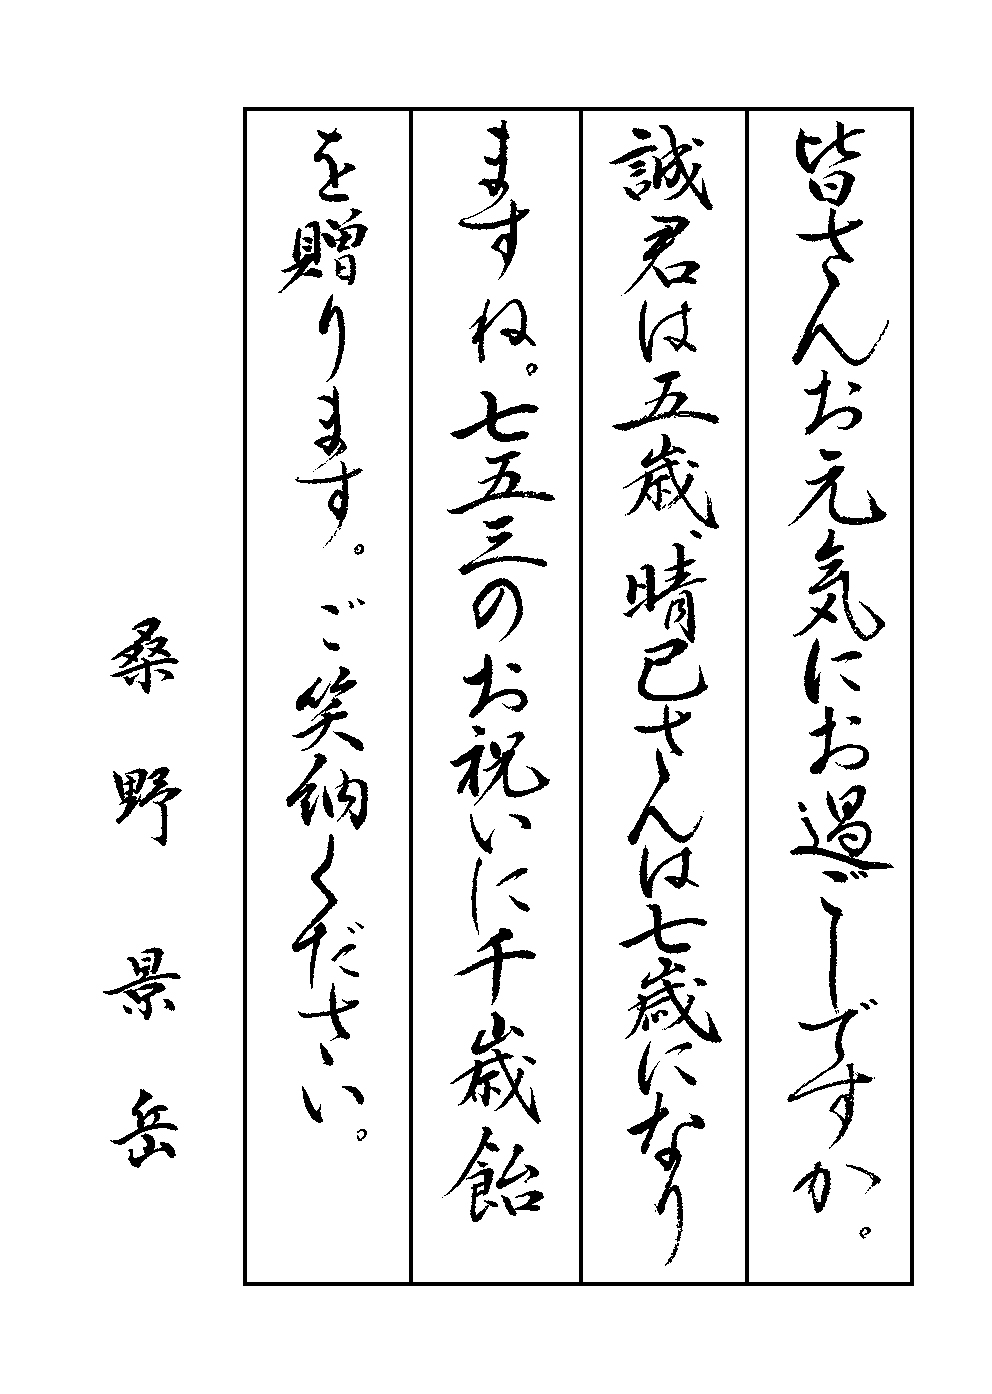 皆さんお元気にお過ごしですか。
誠君は五歳、晴己さんは七歳になり
ますね。七五三のお祝いに千歳飴
を贈ります。ご笑納ください。
桑野景岳